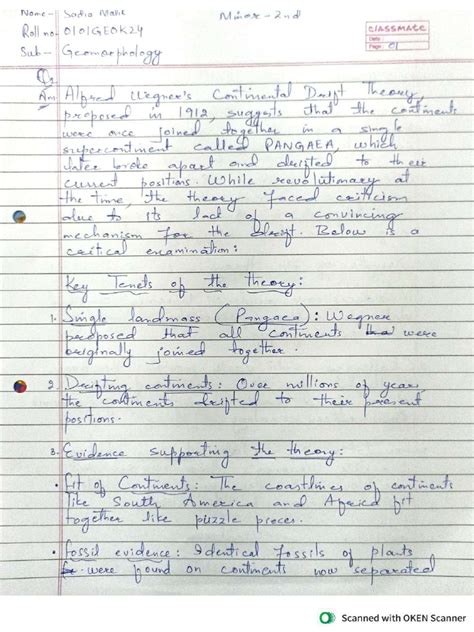 Name - Sadia Malik Minor - 2nd
Roll no- 0101GEOK24
Sub - Geomorphology
CLASSMATE
Date :
Page : 01
Q1
Ans Alfred Wegner's Continental Drift Theory,
proposed in 1912, suggests that the continents
were once joined together in a single
supercontinent called PANGAEA, which
later broke apart and drifted to their
current positions. While revolutionary at
the time, the theory faced criticism
due to its lack of a convincing
mechanism for the drift. Below is a
critical examination:
Key Tenets of the theory:
1. Single landmass (Pangaea): Wegner
proposed that all continents were
originally joined together.
2. Drifting continents: Over millions of year,
the continents drifted to their present
positions.
3. Evidence supporting the theory:
• Fit of Continents: The coastlines of continents
like South America and Africa fit
together like puzzle pieces.
• Fossil evidence: Identical Fossils of plants
were found on continents now separated
Scanned with OKEN Scanner